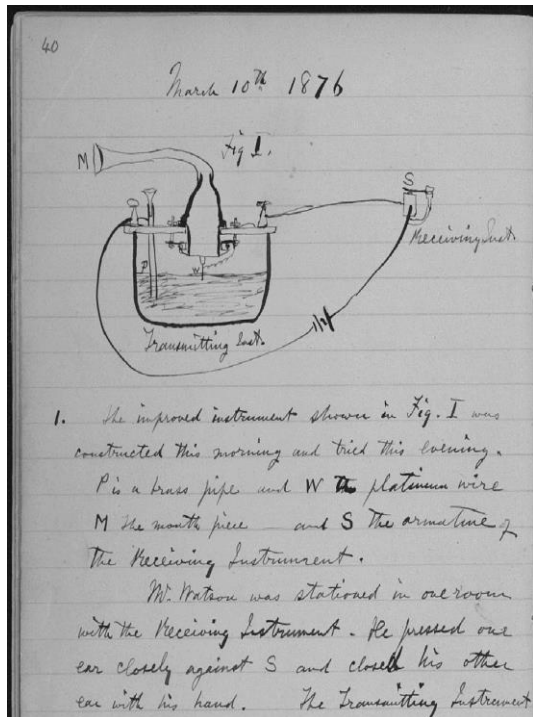 40
March 10th 1876
M
Fig I.
S
Receiving Inst.
P
W
Transmitting Inst.
1. The improved instrument shown in Fig. I was
constructed this morning and tried this evening.
P is a brass pipe and W the platinum wire
M the mouth piece — and S the armature of
the Receiving Instrument.
Mr. Watson was stationed in one room
with the Receiving Instrument. He pressed one
ear closely against S and closed his other
ear with his hand. The Transmitting Instrument